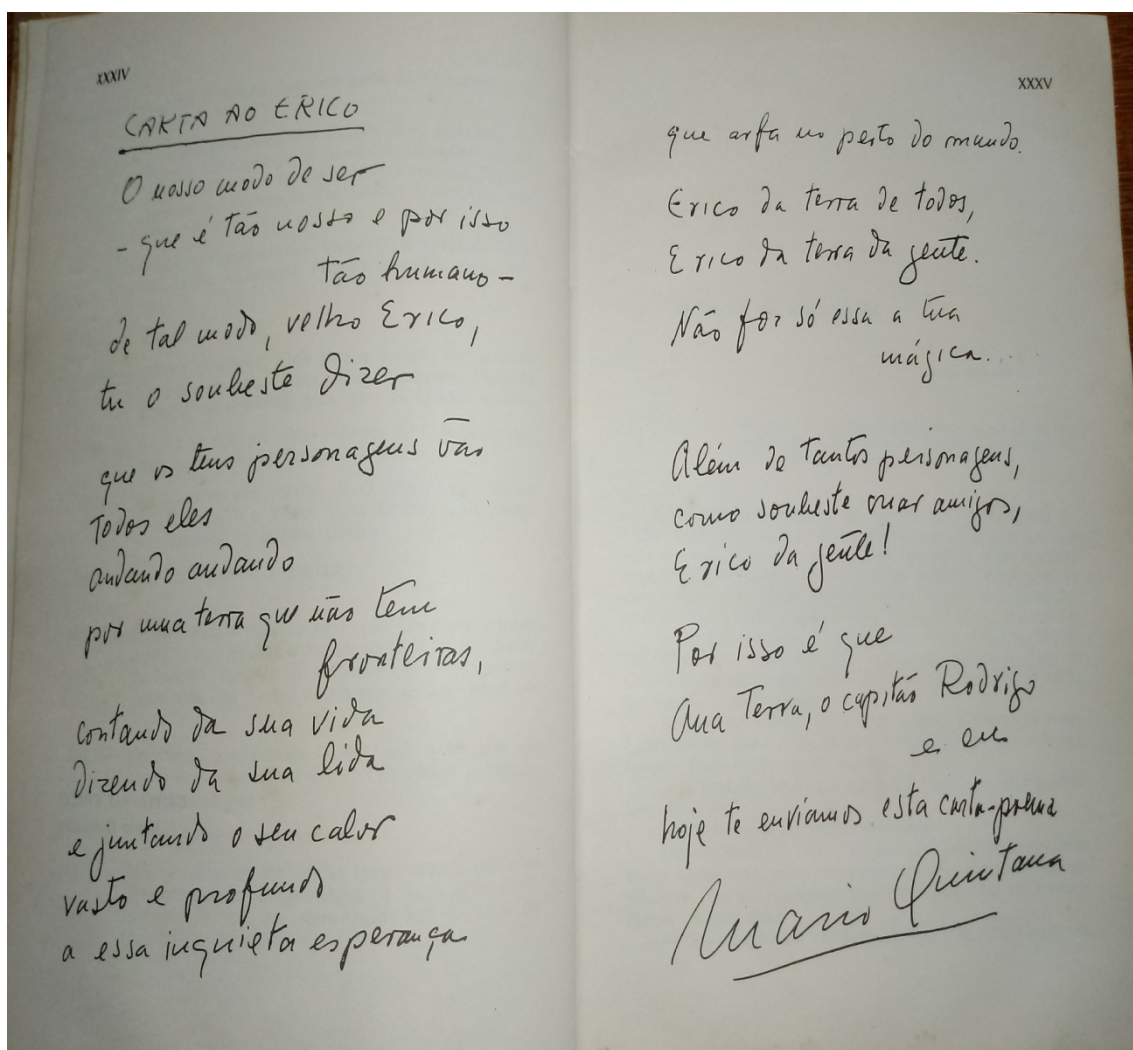 XXXIV
CARTA AO ERICO
O nosso modo de ser
- que é tão nosso e por isso
tão humano -
de tal modo, velho Erico,
tu o soubeste dizer
que os teus personagens vão
todos eles
andando andando
por uma terra que não tem
fronteiras,
contando da sua vida
dizendo da sua lida
e juntando o seu calor
vasto e profundo
a essa inquieta esperança
XXXV
que arfa no peito do mundo.
Erico da terra de todos,
Erico da terra da gente.
Não foi só essa a tua
mágica...
Além de tantos personagens,
como soubeste criar amigos,
Erico da gente!
Por isso é que
Ana Terra, o capitão Rodrigo
e eu
hoje te enviamos esta carta-poema
Mario Quintana